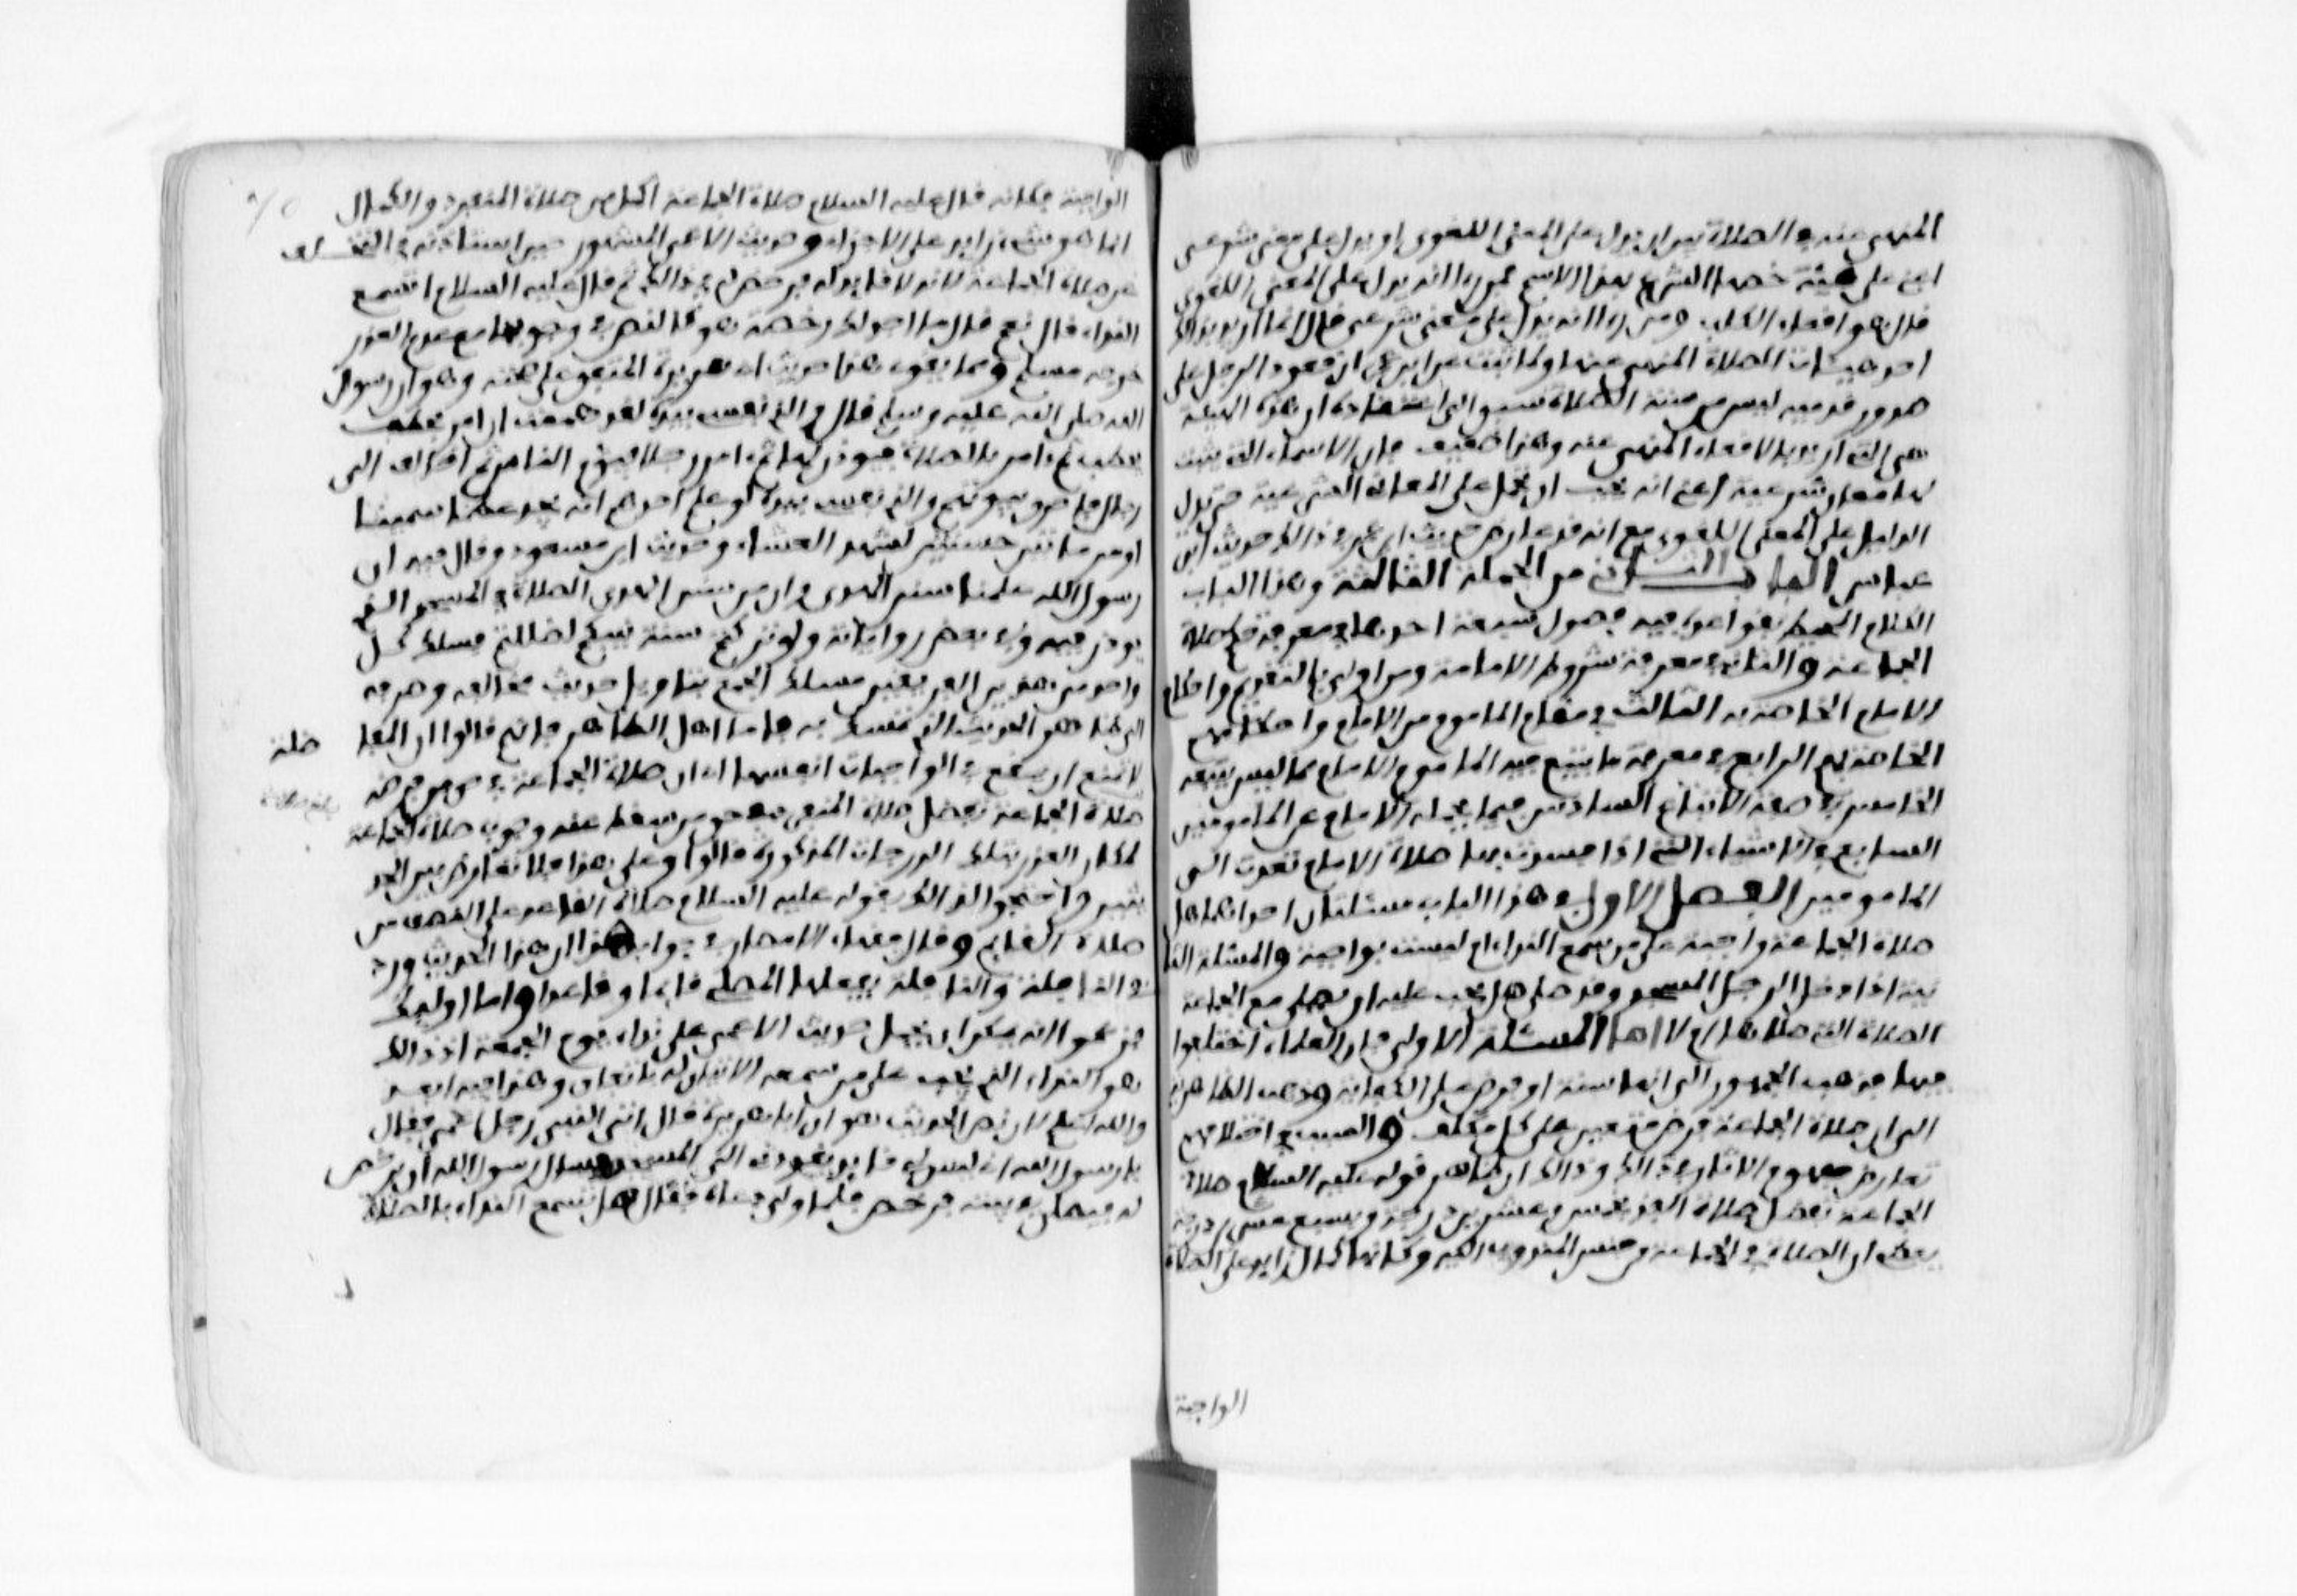 المنهي عنه في الصلاة بين ان يدل على المعنى اللغوي او يدل على معنى شرعي
اعني على هيئة خصها الشرع بهذا الاسم فمن راى انه يدل على المعنى اللغوي
قال هو اقعاء الكلب ومن راى انه يدل على معنى شرعي قال انما اريد بذلك
احدى هيئات الصلاة المنهي عنها ولما ثبت عن ابن عمر ان قعود الرجل على
صدور قدميه ليس من سنة الصلاة سبق الى اعتقاده ان هذه الهيئة
هي التي اريد بالاقعاء المنهي عنه وهذا ضعيف فان الاسماء التي لم تثبت
لها معان شرعية يجب ان تحمل على المعنى حتى يدل
الدليل على المعنى اللغوي مع انه قد عارض حديث ابن عمر في ذلك حديث ابن
عباس الباب الثاني من الجملة الثالثة وهذا الباب
الكلام المحيط بقواعده فيه فصول سبعة احدها في معرفة حكم صلاة
الجماعة والثاني في معرفة شروط الامامة ومن اولى بالتقديم واحكام
الامام الخاصة به الثالث في مقام الماموم من الامام واحكامهم
الخاصة بهم الرابع في معرفة ما يتبع فيه الماموم الامام مما ليس يتبعه
الخامس في صفة الاتباع السادس فيما يحمله الامام عن المامومين
السابع في الاشياء التي اذا فسدت بها صلاة الامام تعدت الى
المامومين الفصل الاول في هذا الباب مسئلتان احداهما هل
صلاة الجماعة واجبة على من سمع النداء ام ليست بواجبة والمسئلة الثا
نية اذا دخل الرجل المسجد وقد صلى هل يجب عليه ان يصلي مع الجماعة
الصلاة التي صلاها ام لا اما المسئلة الاولى فان العلماء اختلفوا
فيها فذهب الجمهور الى انها سنة او فرض على الكفاية وذهب الظاهرية
الى ان صلاة الجماعة فرض متعين على كل مكلف والسبب في اختلافهم
تعارض مفهوم الاثار في ذلك وذلك ان ظاهر قوله عليه السلام صلاة
الجماعة تفضل صلاة الفذ بخمس وعشرين درجة وبسبع وعشرين درجة
يعني ان الصلاة في الجماعة من جنس المندوب اليه وكانها كمال زايد على الصلاة
الواجبة
الواجبة فكانه قال عليه السلام صلاة الجماعة اكمل من صلاة المنفرد والكمال
انما هو شيء زايد على الاجزاء وحديث الاعمى المشهور حين استاذنه في التخلف
عن صلاة الجماعة لانه لا قايد له فرخص له في ذلك ثم قال عليه السلام اتسمع
النداء قال نعم قال ما اجد لك رخصة هو كالنص في وجوبها مع عدم العذر
خرجه مسلم ومما يقوي هذا حديث ابي هريرة المتفق على صحته وهو ان رسول
الله صلى الله عليه وسلم قال والذي نفسي بيده لقد هممت ان امر بحطب
يحطب ثم امر بالصلاة فيوذن لها ثم امر رجلا فيوم الناس ثم اخالف الى
رجال فاحرق بيوتهم والذي نفسي بيده لو علم احدهم انه يجد عظما سمينا
او مرماتين حسنتين لشهد العشاء وحديث ابن مسعود وقال فيه ان
رسول الله علمنا سنن الهدى وان من سنن الهدى الصلاة في المسجد الذي
يوذن فيه وفي بعض رواياته ولو تركتم سنة نبيكم لضللتم فسلك كل
واحد من هذين الفريقين مسلك الجمع بتاويل حديث مخالفه وصرفه
الى ظاهر الحديث الذي تمسك به فاما اهل الظاهر فانهم قالوا ان المفا
ضلة
لا يمتنع ان يقع في الواجبات انفسها اي ان صلاة الجماعة في حق من فرضه
صلاة الجماعة تفضل صلاة المنفرد في حق من سقط عنه وجوب صلاة الجماعة
لمكان العذر بتلك الدرجات المذكورة قالوا وعلى هذا فلا تعارض بين الحد
يثين واحتجوا لذلك بقوله عليه السلام صلاة القاعد على النصف من
صلاة القايم وقال فقهاء الامصار في جواب هذا ان هذا الحديث ورد
في النافلة والنافلة يفعلها المصلي قايما وقاعدا واما اوليك
فزعموا انه يمكن ان يحمل حديث الاعمى على نداء يوم الجمعة اذ ذلك
هو النداء الذي يجب على من سمعه الاتيان له باتفاق وهذا فيه بعد
والله اعلم لان نص الحديث هو ان ابا هريرة قال اتى النبي رجل اعمى فقال
يا رسول الله انه ليس لي قايد يقودني الى المسجد فسال رسول الله ان يرخص
له فيصلي في بيته فرخص له فلما ولى دعاه فقال هل تسمع النداء بالصلاة